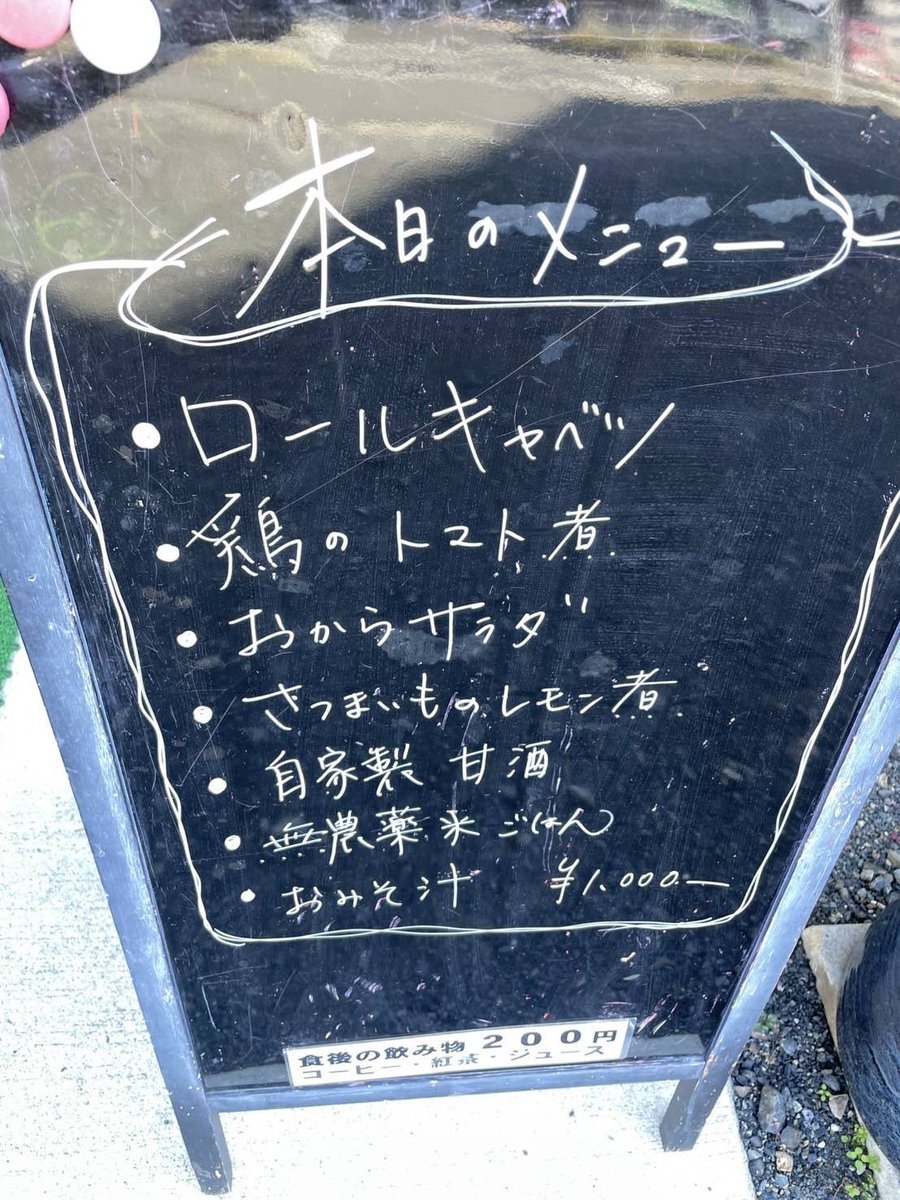 本日のメニュー
・ロールキャベツ
・鶏のトマト煮
・おからサラダ
・さつまいものレモン煮
・自家製 甘酒
・無農薬米ごはん
・おみそ汁 ¥1,000ー
食後の飲み物 200円
コーヒー・紅茶・ジュース